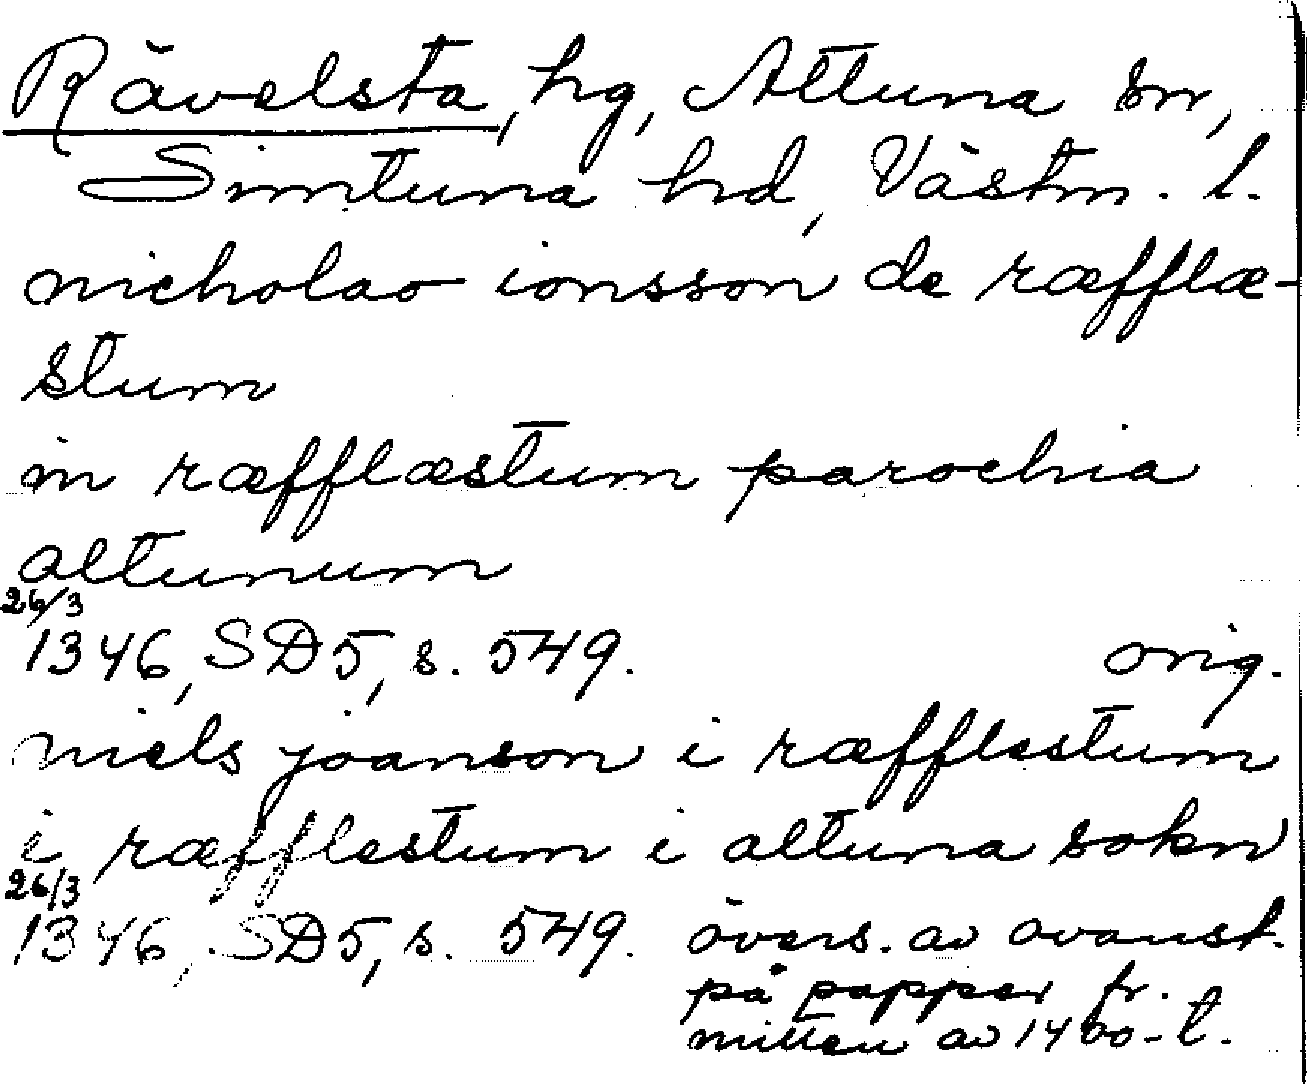 Rävelsta, hg, Altuna sn,
Simtuna hd, Västm. l.
nicholao ionsson de ræfflæ-
stum
in ræfflæstum parochia
altunum
26/3
1346, SD5, s. 549. orig.
niels joanson i ræfflestum
i ræfflestum i altuna sokn
26/3
1346, SD5, s. 549. övers. av ovanst.
på papper fr.
mitten av 1400-t.